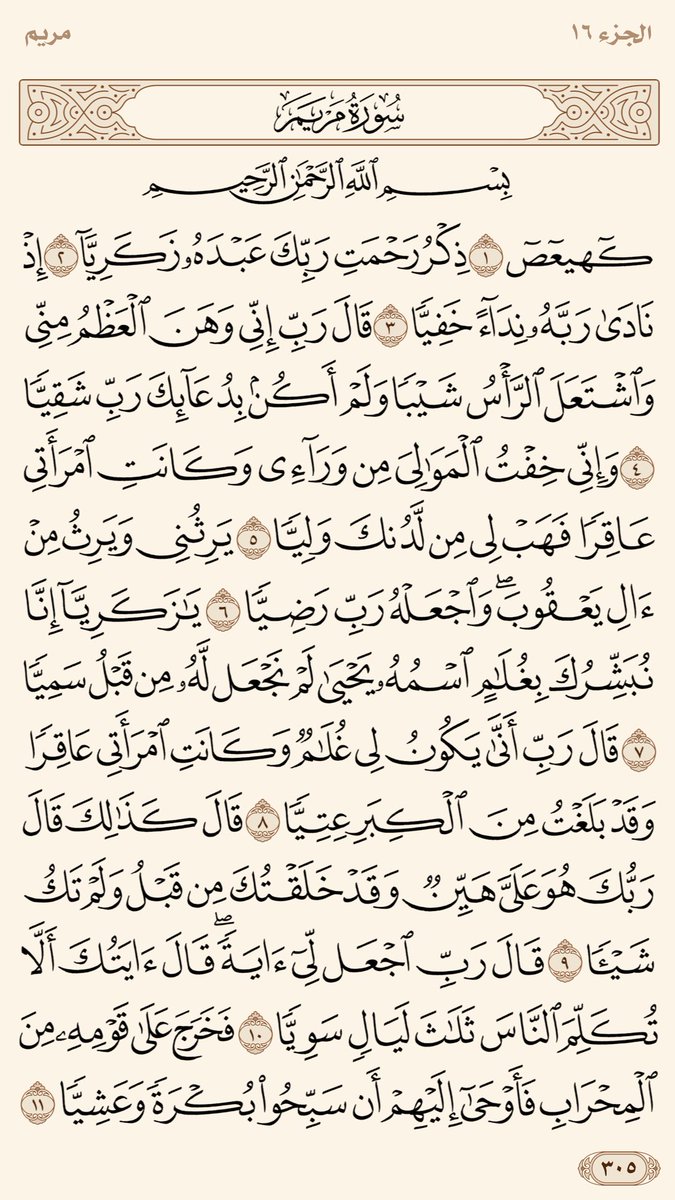 الجزء ١٦
مريم
سُورَةُ مَرۡيَمَ
بِسۡمِ ٱللَّهِ ٱلرَّحۡمَٰنِ ٱلرَّحِيمِ
كٓهيعٓصٓ ١ ذِكۡرُ رَحۡمَتِ رَبِّكَ عَبۡدَهُۥ زَكَرِيَّآ ٢ إِذۡ
نَادَىٰ رَبَّهُۥ نِدَآءً خَفِيّٗا ٣ قَالَ رَبِّ إِنِّي وَهَنَ ٱلۡعَظۡمُ مِنِّي
وَٱشۡتَعَلَ ٱلرَّأۡسُ شَيۡبٗا وَلَمۡ أَكُنۢ بِدُعَآئِكَ رَبِّ شَقِيّٗا
٤ وَإِنِّي خِفۡتُ ٱلۡمَوَٰلِيَ مِن وَرَآءِي وَكَانَتِ ٱمۡرَأَتِي
عَاقِرٗا فَهَبۡ لِي مِن لَّدُنكَ وَلِيّٗا ٥ يَرِثُنِي وَيَرِثُ مِنۡ
ءَالِ يَعۡقُوبَۖ وَٱجۡعَلۡهُ رَبِّ رَضِيّٗا ٦ يَٰزَكَرِيَّآ إِنَّا
نُبَشِّرُكَ بِغُلَٰمٍ ٱسۡمُهُۥ يَحۡيَىٰ لَمۡ نَجۡعَل لَّهُۥ مِن قَبۡلُ سَمِيّٗا
٧ قَالَ رَبِّ أَنَّىٰ يَكُونُ لِي غُلَٰمٞ وَكَانَتِ ٱمۡرَأَتِي عَاقِرٗا
وَقَدۡ بَلَغۡتُ مِنَ ٱلۡكِبَرِ عِتِيّٗا ٨ قَالَ كَذَٰلِكَ قَالَ
رَبُّكَ هُوَ عَلَيَّ هَيِّنٞ وَقَدۡ خَلَقۡتُكَ مِن قَبۡلُ وَلَمۡ تَكُ
شَيۡـٔٗا ٩ قَالَ رَبِّ ٱجۡعَل لِّيٓ ءَايَةٗۖ قَالَ ءَايَتُكَ أَلَّا
تُكَلِّمَ ٱلنَّاسَ ثَلَٰثَ لَيَالٖ سَوِيّٗا ١٠ فَخَرَجَ عَلَىٰ قَوۡمِهِۦ مِنَ
ٱلۡمِحۡرَابِ فَأَوۡحَىٰٓ إِلَيۡهِمۡ أَن سَبِّحُواْ بُكۡرَةٗ وَعَشِيّٗا ١١
٣٠٥